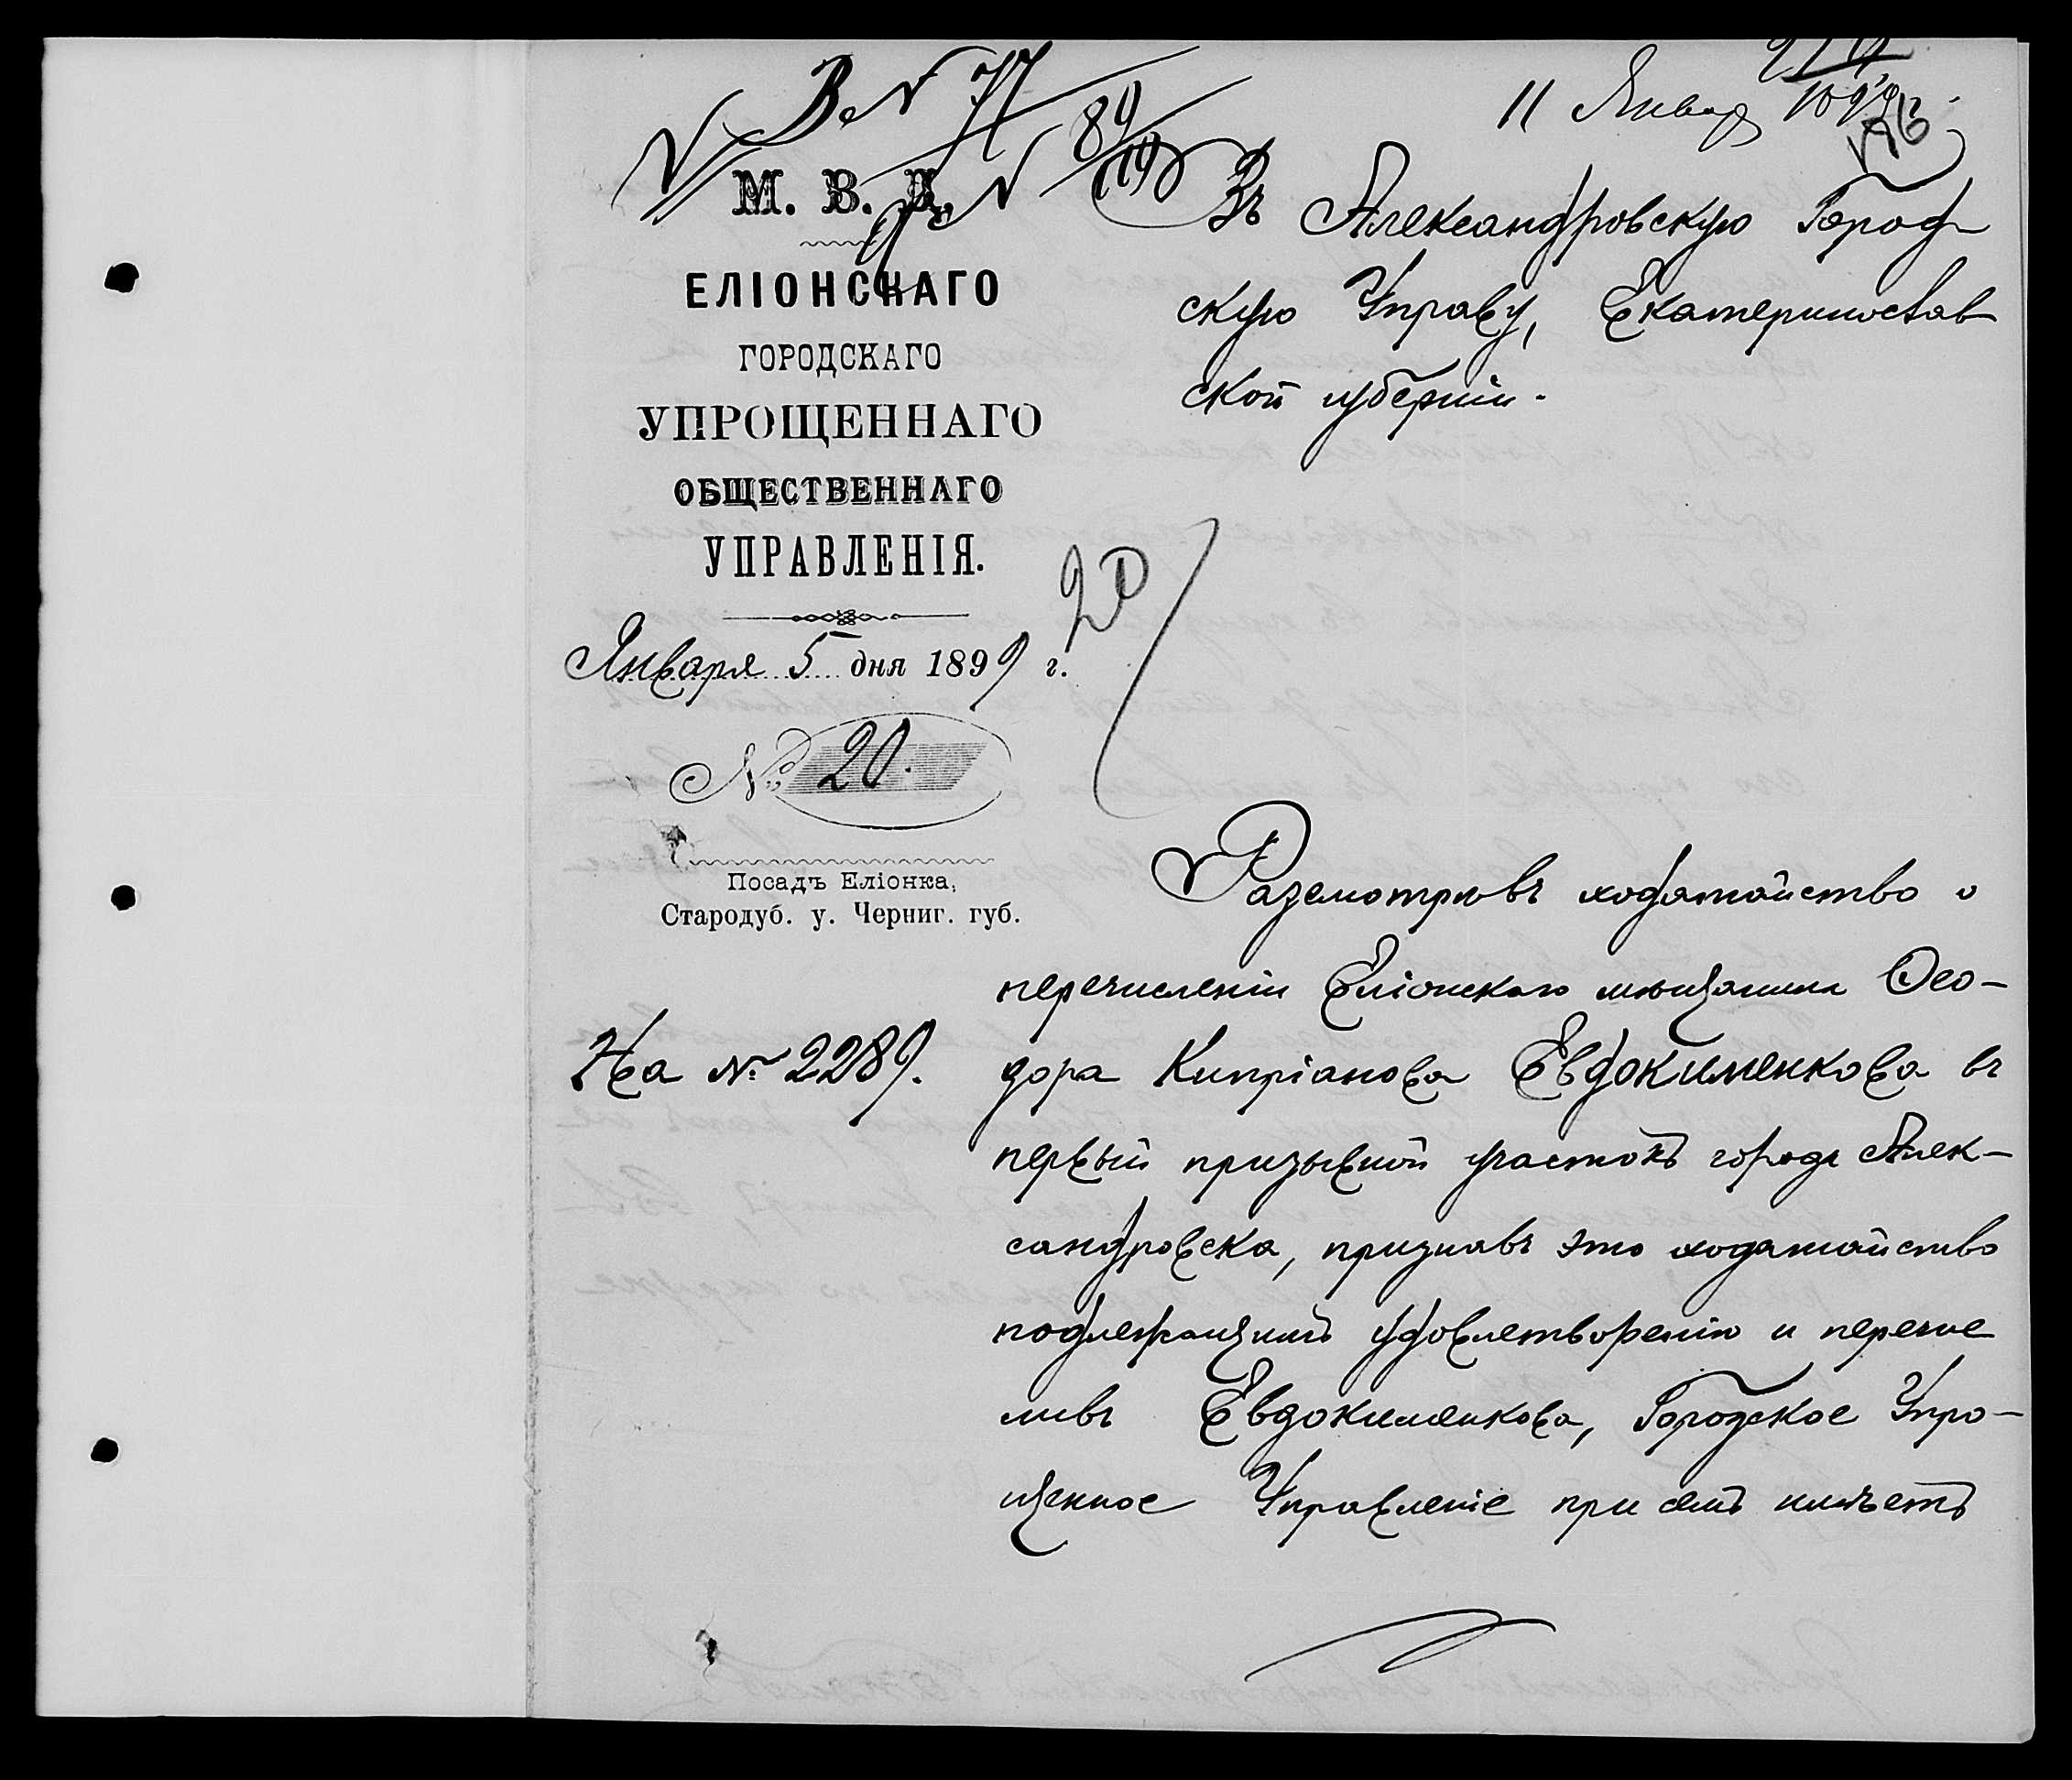 11 Январ
М. В. Д.
ЕЛІОНСКАГО
ГОРОДСКАГО
УПРОЩЕННАГО
ОБЩЕСТВЕННАГО
УПРАВЛЕНІЯ.
Января 5 дня 1899 г.
№ 20.
Посадъ Еліонка,
Стародуб. у. Черниг. губ.
На № 2289.
20
Въ Александровскую Город
скую Управу, Екатеринослав
ской губерніи.
Разсмотрѣвъ ходатайство о
перечисленіи Еліонскаго мѣщанина Ѳео-
дора Кипріанова Евдокименкова въ
первый призывной участокъ города Алек-
сандровска, признавъ это ходатайство
подлежащимъ удовлетворенію и перечис
ливъ Евдокименкова, Городское Упро-
щенное Управленіе при семъ имѣетъ